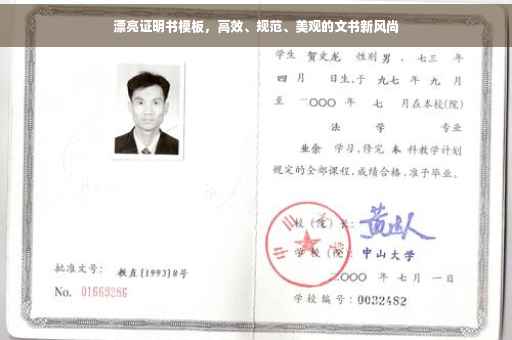 漂亮证明书模板，高效、规范、美观的文书新风尚
学生 贺文龙 性别 男 ，七三 年
四 月 日生，于 九七 年 九 月
至 二〇〇〇 年 七 月在本校(院)
法 学 专业
业余 学习，修完 本 科教学计划
规定的全部课程，成绩合格，准予毕业。
校（院）长：
学 校（院）：中山大学
二〇〇〇 年 七 月 一 日
学校编号：0032482
批准文号： 教直[1993]8号
No. 01663286